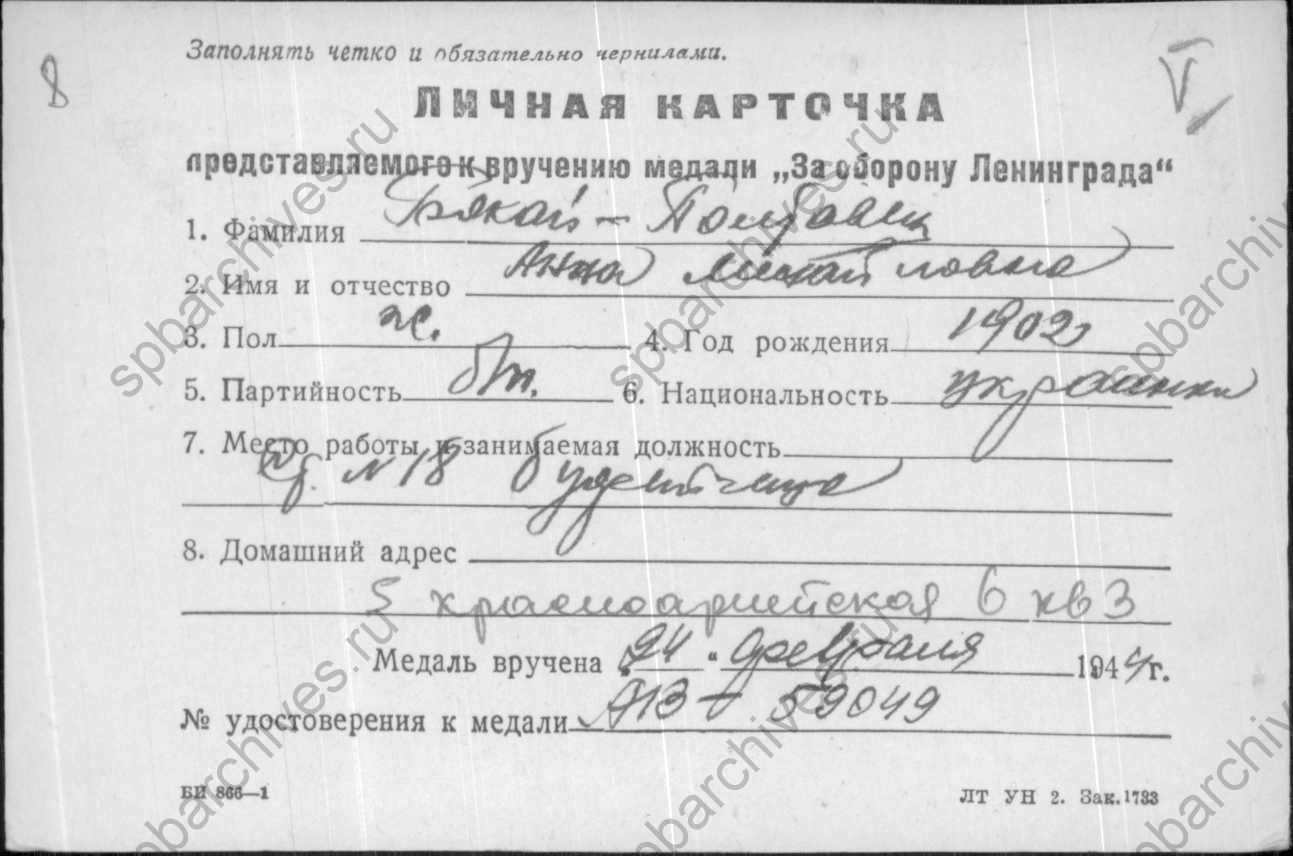 8
Заполнять четко и обязательно чернилами.
V
ЛИЧНАЯ КАРТОЧКА
представляемого к вручению медали „За оборону Ленинграда“
1. Фамилия Бякай - Полтавец
2. Имя и отчество Анна Михайловна
3. Пол ж. 4. Год рождения 1902
5. Партийность б/п. 6. Национальность украинка
7. Место работы и занимаемая должность
№ 18 буфетчица
8. Домашний адрес
5 красноармейская 6 кв 3
Медаль вручена „24“ февраля 1944 г.
№ удостоверения к медали АВ - 59049
БИ 866—1
ЛТ УН 2. Зак. 1733
spbarchives.ru
spbarchives.ru
spbarchives.ru
spbarchives.ru
spbarchives.ru